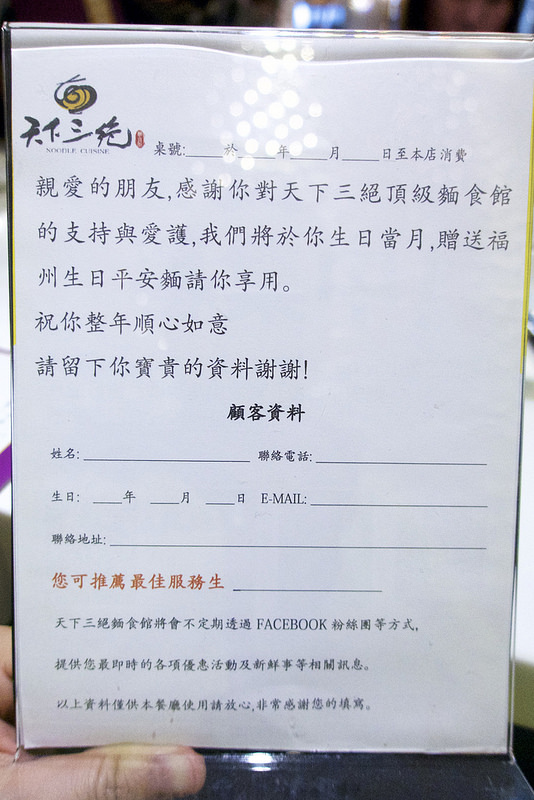 天下三絕
NOODLE CUISINE
桌號:_____於_____年_____月_____日至本店消費
親愛的朋友,感謝你對天下三絕頂級麵食館
的支持與愛護,我們將於你生日當月,贈送福
州生日平安麵請你享用。
祝你整年順心如意
請留下你寶貴的資料謝謝!
顧客資料
姓名:____________________ 聯絡電話:____________________
生日: ____年 ____月 ____日 E-MAIL:____________________
聯絡地址:________________________________________
您可推薦最佳服務生 ____________________
天下三絕麵食館將會不定期透過 FACEBOOK 粉絲團等方式,
提供您最即時的各項優惠活動及新鮮事等相關訊息。
以上資料僅供本餐廳使用請放心,非常感謝您的填寫。